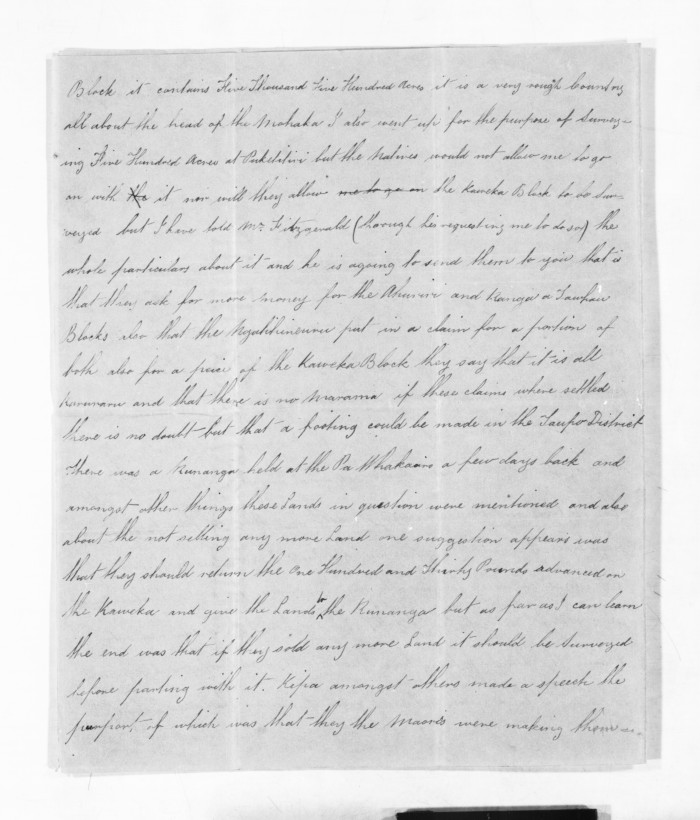 Block it contains Five Thousand Five Hundred Acres it is a very rough Country
all about the head of the Mohaka I also went up for the purpose of Survey-
ing Five Hundred Acres at Puketitiri but the Natives would not allow me to go
on with the it nor will they allow me to go on the Kaweka Block to be Sur-
veyed but I have told Mr Fitzgerald (through his requesting me to do so) the
whole particulars about it and he is agoing to send them to you that is
that they ask for more money for the Ahuriri and
Blocks also that the put in a claim for a portion of
both also for a piece of the Kaweka Block they say that it is all
and that there is no Marama if these claims where settled
there is no doubt but that a footing could be made in the Taupo District
There was a Runanga held at the Pa Whakaairo a few days back and
amongst other things these Lands in question were mentioned and also
about the not selling any more Land one suggestion appears was
that they should return the One Hundred and Thirty Pounds advanced on
the Kaweka and give the Lands to the Runanga but as far as I can learn
the end was that if they sold any more Land it should be Surveyed
before parting with it. Kipa amongst others made a speech the
purport of which was that they the Maoris were making them